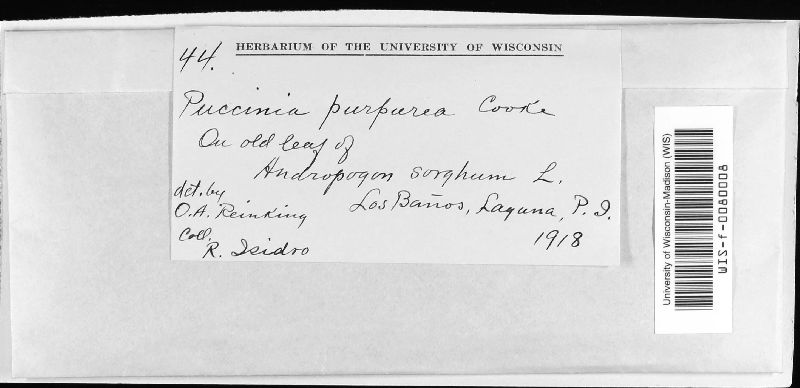 44.
HERBARIUM OF THE UNIVERSITY OF WISCONSIN
Puccinia purpurea Cooke
On old leaf of
Andropogon sorghum L.
det. by
O.A. Reinking
Los Baños, Laguna, P. I.
Coll.
R. Isidro
1918
University of Wisconsin-Madison (WIS)
WIS-f-0080008